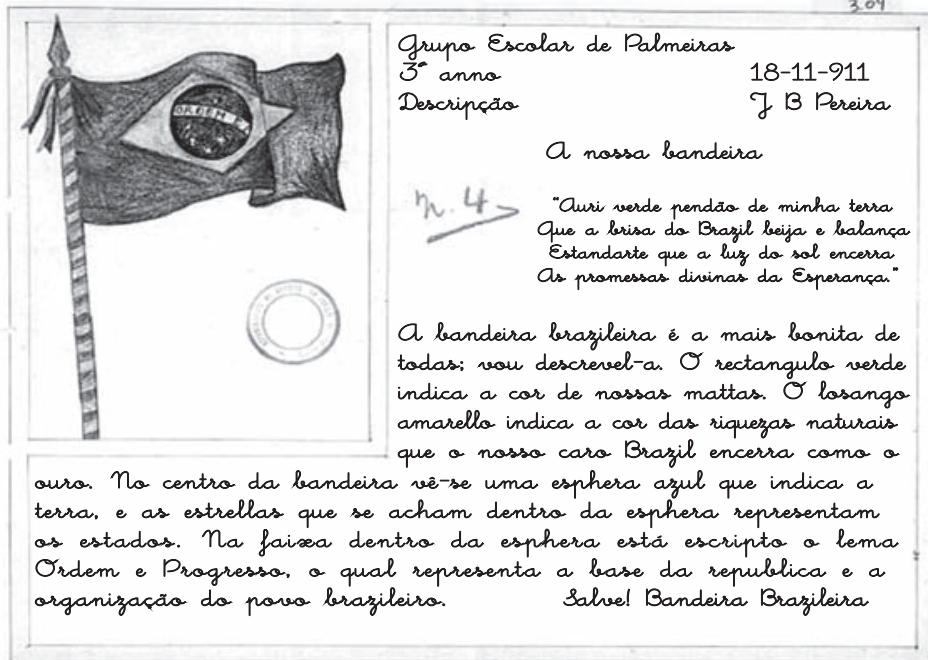 3.09
Grupo Escolar de Palmeiras
3º anno 18-11-911
Descripção J B Pereira
A nossa bandeira
n. 4
"Auri verde pendão de minha terra
Que a brisa do Brazil beija e balança
Estandarte que a luz do sol encerra
As promessas divinas da Esperança."
ORDEM E P
A bandeira brazileira é a mais bonita de
todas; vou descrevel-a. O rectangulo verde
indica a cor de nossas mattas. O losango
amarello indica a cor das riquezas naturais
que o nosso caro Brazil encerra como o
ouro. No centro da bandeira vê-se uma esphera azul que indica a
terra, e as estrellas que se acham dentro da esphera representam
os estados. Na faixa dentro da esphera está escripto o lema
Ordem e Progresso, o qual representa a base da republica e a
organização do povo brazileiro. Salve! Bandeira Brazileira